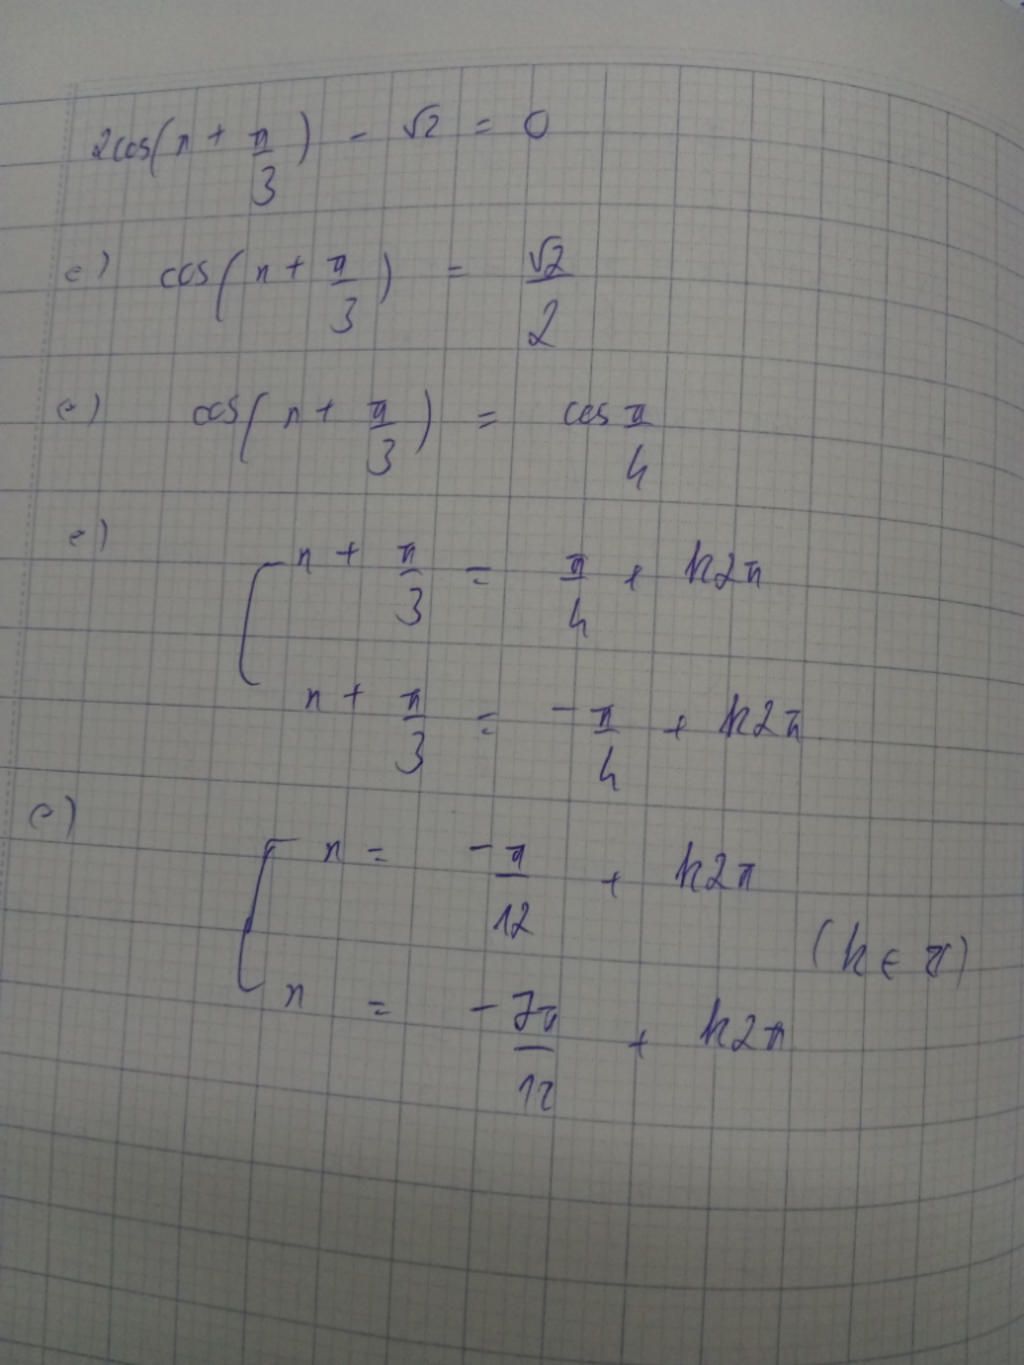 2cos(x + π/3) - √2 = 0
(=) cos(x + π/3) = √2/2
(=) cos(x + π/3) = cos π/4
(=) [ x + π/3 = π/4 + k2π
x + π/3 = -π/4 + k2π
(=) [ x = -π/12 + k2π
(k ∈ Z)
x = -7π/12 + k2π